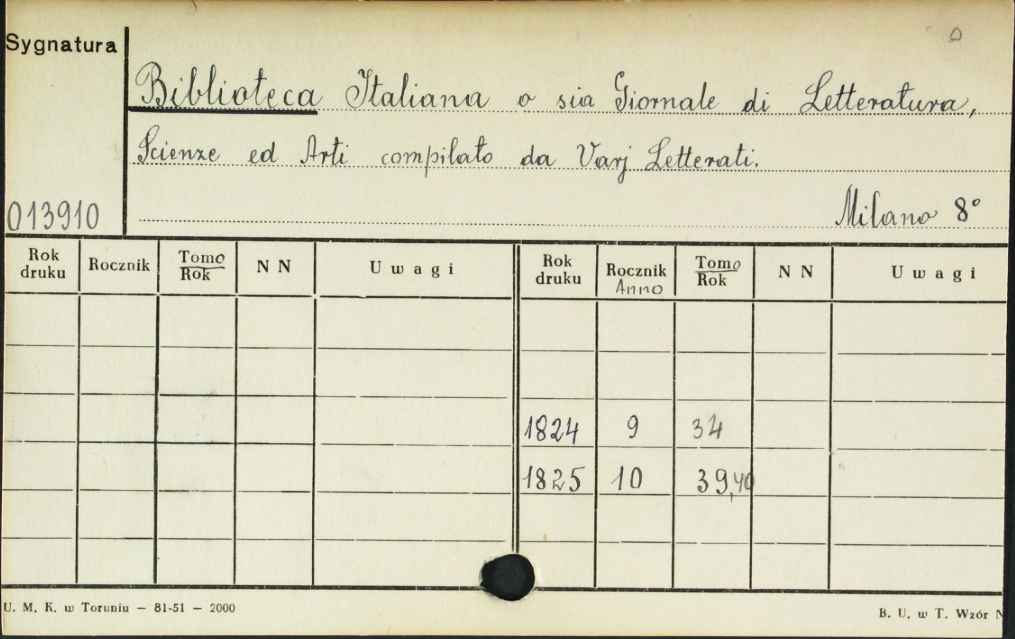 Sygnatura
Biblioteca Italiana o sia Giornale di Letteratura,
Scienze ed Arti compilato da Varj Letterati.
013910 Milano 8°
Rok druku Rocznik Tomo/Rok N N Uwagi Rok druku Rocznik Anno Tomo/Rok N N Uwagi
1824 9 34
1825 10 39,40
U. M. K. w Toruniu — 81-51 — 2000 B. U. w T. Wzór N